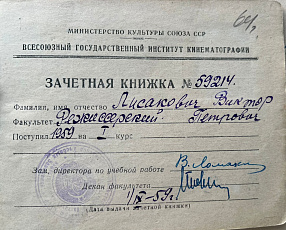 64.
МИНИСТЕРСТВО КУЛЬТУРЫ СОЮЗА ССР
ВСЕСОЮЗНЫЙ ГОСУДАРСТВЕННЫЙ ИНСТИТУТ КИНЕМАТОГРАФИИ
ЗАЧЕТНАЯ КНИЖКА № 59214.
Фамилия, имя, отчество Лисакович Виктор
Факультет Режиссерский Петрович
Поступил 1959 на I курс
Зам. директора по учебной работе
Декан факультета
1/IX-59 г.
(Дата выдачи зачетной книжки)